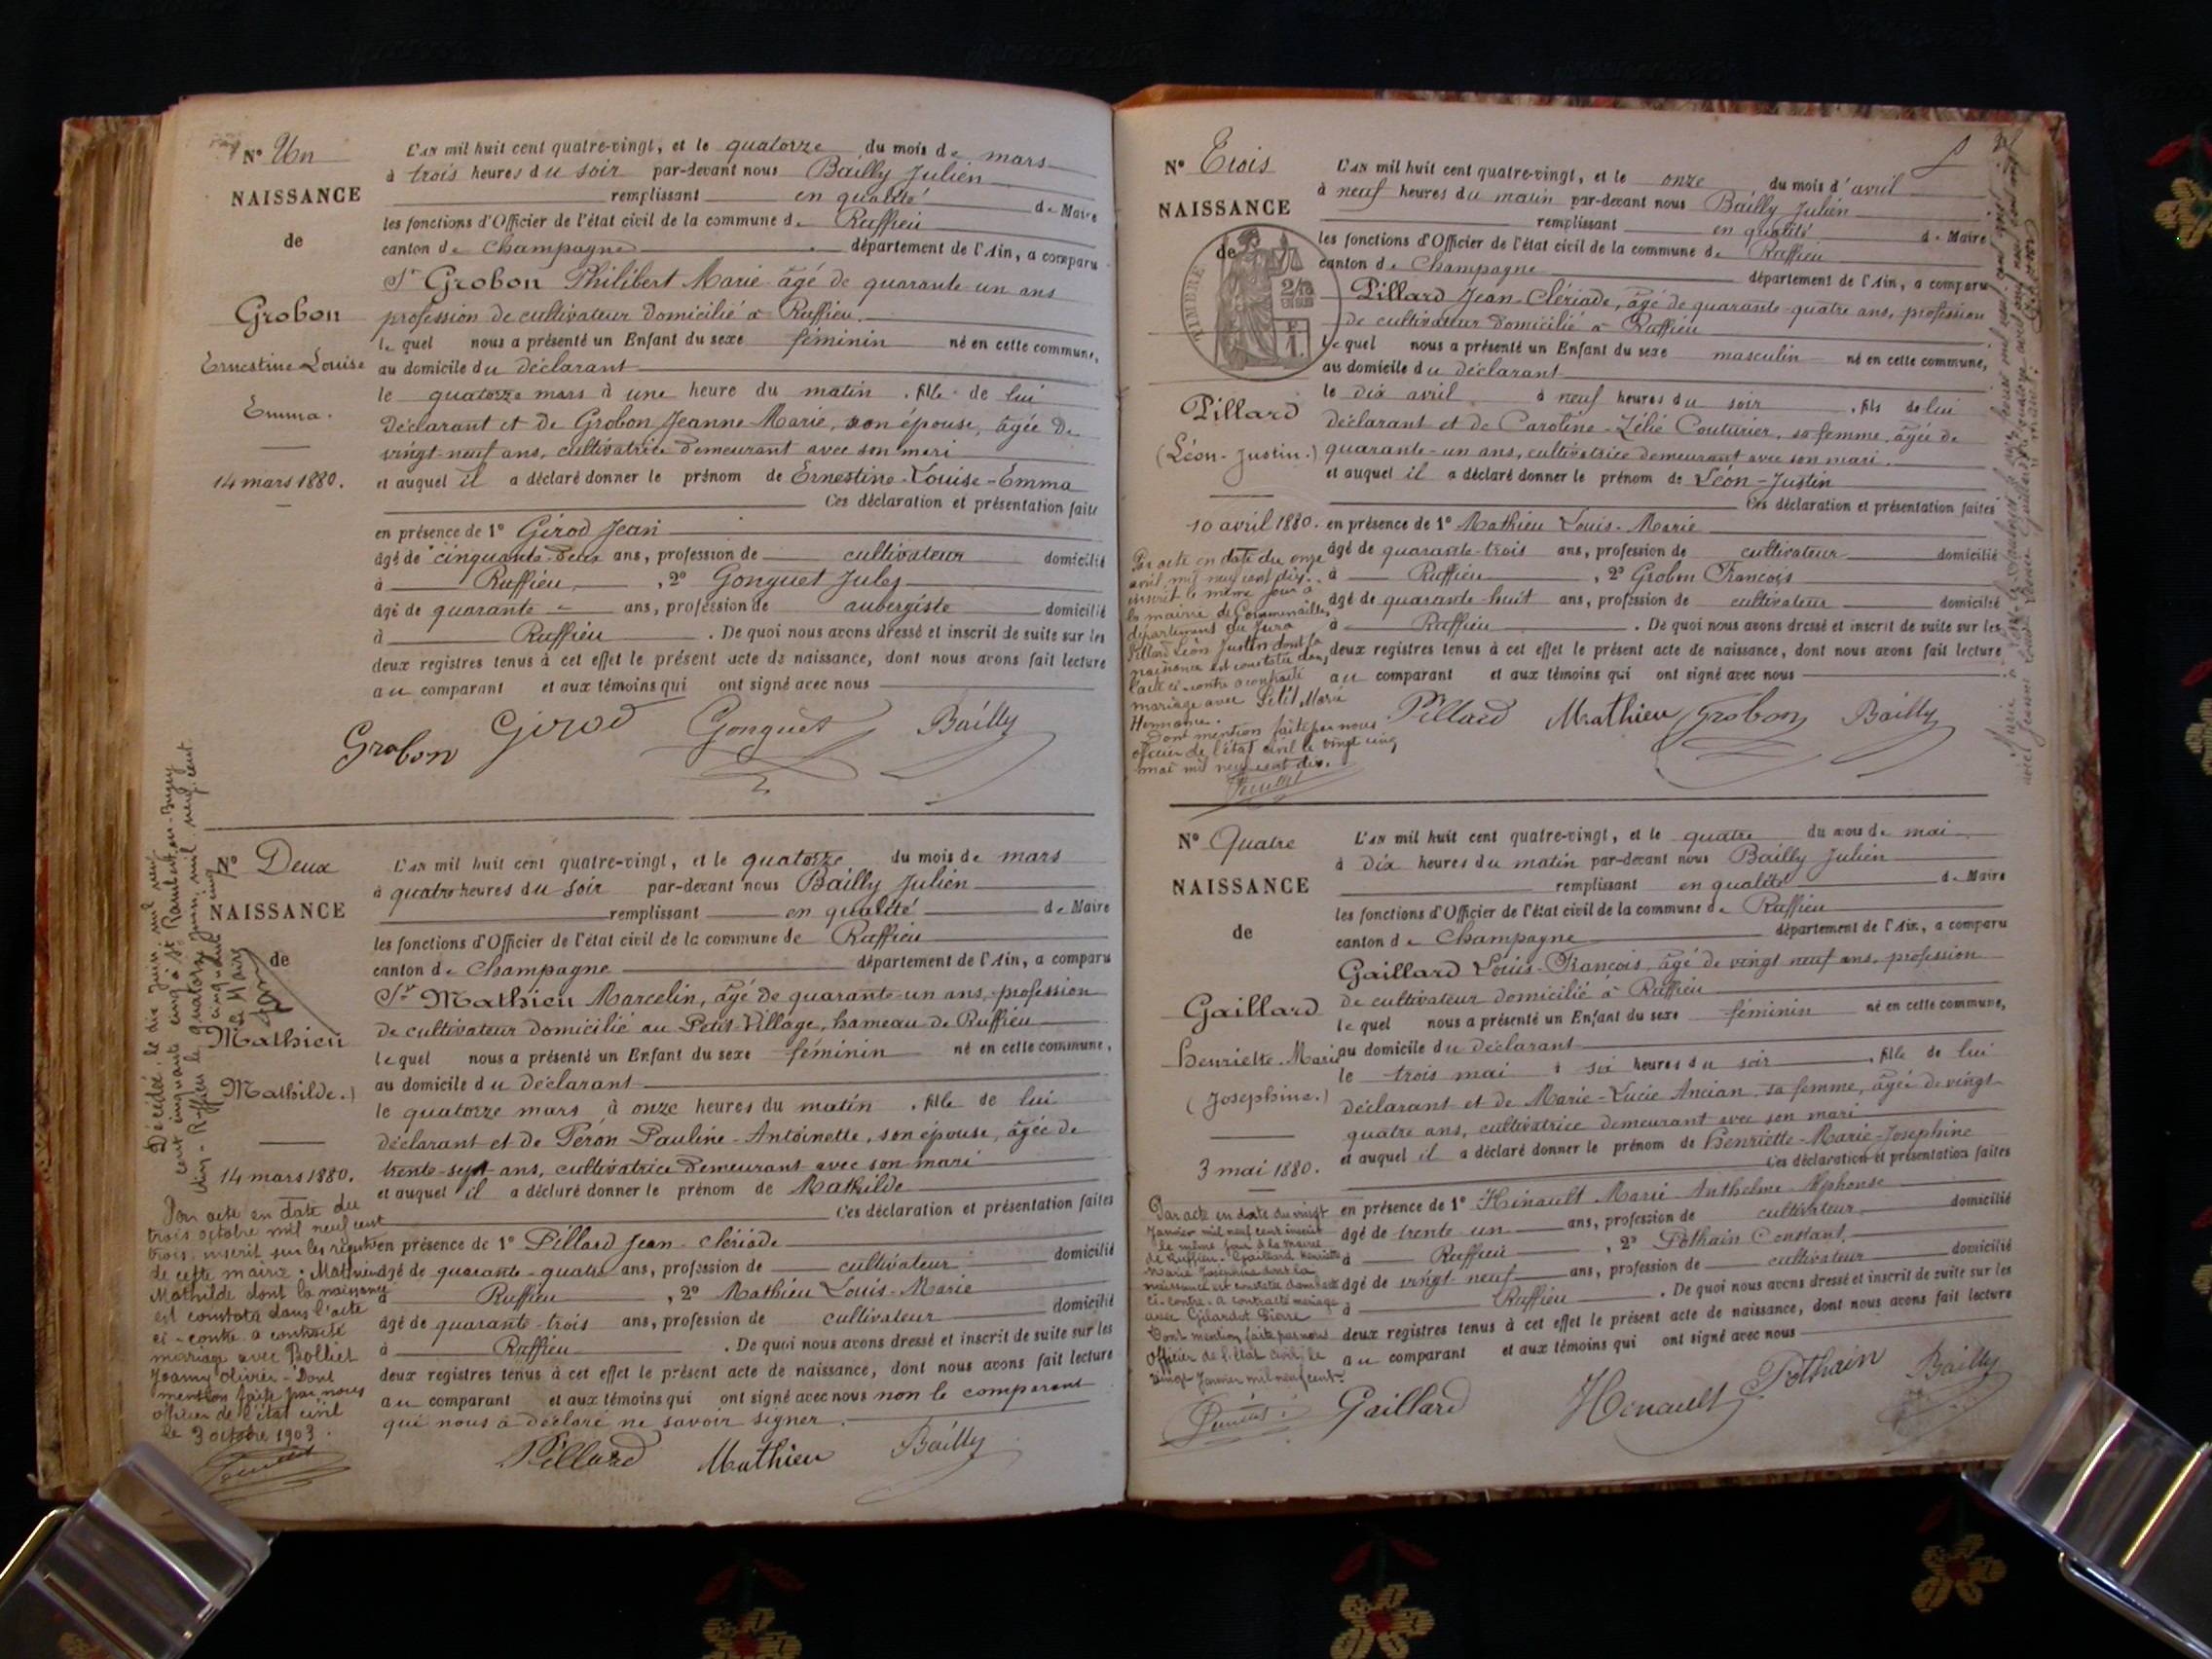 N° Un
NAISSANCE
de
Grobon
Ernestine Louise
Emma.
14 mars 1880.
L'an mil huit cent quatre-vingt, et le quatorze du mois de mars
à trois heures du soir par-devant nous Bailly Julien
remplissant en qualité de Maire
les fonctions d'Officier de l'état civil de la commune de Ruffieu
canton de Champagne département de l'Ain, a comparu
Sr Grobon Philibert Marie âgé de quarante un ans
profession de cultivateur domicilié à Ruffieu.
lequel nous a présenté un Enfant du sexe féminin né en cette commune,
au domicile du déclarant
le quatorze mars à une heure du matin, fille de lui
déclarant et de Grobon Jeanne Marie, son épouse, âgée de
vingt-neuf ans, cultivatrice demeurant avec son mari
et auquel il a déclaré donner le prénom de Ernestine-Louise-Emma
Ces déclaration et présentation faites
en présence de 1° Girod Jean
âgé de cinquante-deux ans, profession de cultivateur domicilié
à Ruffieu, 2° Gonguet Jules
âgé de quarante ans, profession de aubergiste domicilié
à Ruffieu. De quoi nous avons dressé et inscrit de suite sur les
deux registres tenus à cet effet le présent acte de naissance, dont nous avons fait lecture
au comparant et aux témoins qui ont signé avec nous
Grobon Girod Gonguet Bailly
N° Deux
NAISSANCE
de
Mathieu
Mathilde.)
14 mars 1880.
Décédée le dix juin mil neuf
cent cinquante cinq à St Rambert-en-Bugey
Ruffieu le quatorze juin mil neuf cent
cinquante cinq
Le Maire
Par acte en date du
trois octobre mil neuf cent
trois inscrit sur les registres
de cette mairie. Mathieu
Mathilde dont la naissance
est constatée dans l'acte
ci-contre a contracté
mariage avec Bolliet
Joanny Olivier - Dont
mention faite par nous
officier de l'état civil
le 3 octobre 1903.
L'an mil huit cent quatre-vingt, et le quatorze du mois de mars
à quatre heures du soir par-devant nous Bailly Julien
remplissant en qualité de Maire
les fonctions d'Officier de l'état civil de la commune de Ruffieu
canton de Champagne département de l'Ain, a comparu
Sr Mathieu Marcelin, âgé de quarante-un ans, profession
de cultivateur domicilié au Petit-Village, hameau de Ruffieu
lequel nous a présenté un Enfant du sexe féminin né en cette commune,
au domicile du déclarant
le quatorze mars à onze heures du matin, fille de lui
déclarant et de Péron Pauline-Antoinette, son épouse, âgée de
trente-sept ans, cultivatrice demeurant avec son mari
et auquel il a déclaré donner le prénom de Mathilde
Ces déclaration et présentation faites
en présence de 1° Pillard Jean-Clériade
âgé de quarante-quatre ans, profession de cultivateur domicilié
à Ruffieu, 2° Mathieu Louis-Marie
âgé de quarante-trois ans, profession de cultivateur domicilié
à Ruffieu. De quoi nous avons dressé et inscrit de suite sur les
deux registres tenus à cet effet le présent acte de naissance, dont nous avons fait lecture
au comparant et aux témoins qui ont signé avec nous non le comparant
qui nous a déclaré ne savoir signer.
Pillard Mathieu Bailly
N° Trois
NAISSANCE
de
TIMBRE
Pillard
(Léon-Justin.)
10 avril 1880.
Par acte en date du onze
avril mil neuf cent dix
inscrit le même jour à
la mairie de Commenailles,
département du Jura
Pillard Léon Justin dont la
naissance est constatée dans
l'acte ci-contre a contracté
mariage avec Petit Marie
Hermance.
Dont mention faite par nous
officier de l'état civil le vingt cinq
mai mil neuf cent dix.
L'an mil huit cent quatre-vingt, et le onze du mois d'avril
à neuf heures du matin par-devant nous Bailly Julien
remplissant en qualité de Maire
les fonctions d'Officier de l'état civil de la commune de Ruffieu
canton de Champagne département de l'Ain, a comparu
Pillard Jean-Clériade, âgé de quarante-quatre ans, profession
de cultivateur domicilié à Ruffieu
lequel nous a présenté un Enfant du sexe masculin né en cette commune,
au domicile du déclarant
le dix avril à neuf heures du soir, fils de lui
déclarant et de Caroline-Zélie Couturier, sa femme, âgée de
quarante-un ans, cultivatrice demeurant avec son mari.
et auquel il a déclaré donner le prénom de Léon-Justin
Ces déclaration et présentation faites
en présence de 1° Mathieu Louis-Marie
âgé de quarante-trois ans, profession de cultivateur domicilié
à Ruffieu, 2° Grobon François
âgé de quarante-huit ans, profession de cultivateur domicilié
à Ruffieu. De quoi nous avons dressé et inscrit de suite sur les
deux registres tenus à cet effet le présent acte de naissance, dont nous avons fait lecture
au comparant et aux témoins qui ont signé avec nous
Pillard Mathieu Grobon Bailly
N° Quatre
NAISSANCE
de
Gaillard
Henriette-Marie
(Josephine.)
3 mai 1880.
Par acte en date du vingt
Janvier mil neuf cent inscrit
le même jour à la mairie
de Ruffieu. Gaillard Henriette
Marie Josephine dont la
naissance est constatée dans l'acte
ci-contre a contracté mariage
avec Gilardot Pierre
Dont mention faite par nous
Officier de l'état civil le
vingt Janvier mil neuf cent.
L'an mil huit cent quatre-vingt, et le quatre du mois de mai
à dix heures du matin par-devant nous Bailly Julien
remplissant en qualité de Maire
les fonctions d'Officier de l'état civil de la commune de Ruffieu
canton de Champagne département de l'Ain, a comparu
Gaillard Louis-François, âgé de vingt neuf ans, profession
de cultivateur domicilié à Ruffieu
lequel nous a présenté un Enfant du sexe féminin né en cette commune,
au domicile du déclarant
le trois mai à six heures du soir, fille de lui
déclarant et de Marie-Lucie Ancian, sa femme, âgée de vingt
quatre ans, cultivatrice demeurant avec son mari
et auquel il a déclaré donner le prénom de Henriette-Marie-Josephine
Ces déclaration et présentation faites
en présence de 1° Hénault Marie Anthelme Alphonse
âgé de trente un ans, profession de cultivateur domicilié
à Ruffieu, 2° Pothain Constant
âgé de vingt-neuf ans, profession de cultivateur domicilié
à Ruffieu. De quoi nous avons dressé et inscrit de suite sur les
deux registres tenus à cet effet le présent acte de naissance, dont nous avons fait lecture
au comparant et aux témoins qui ont signé avec nous
Gaillard Hénault Pothain Bailly